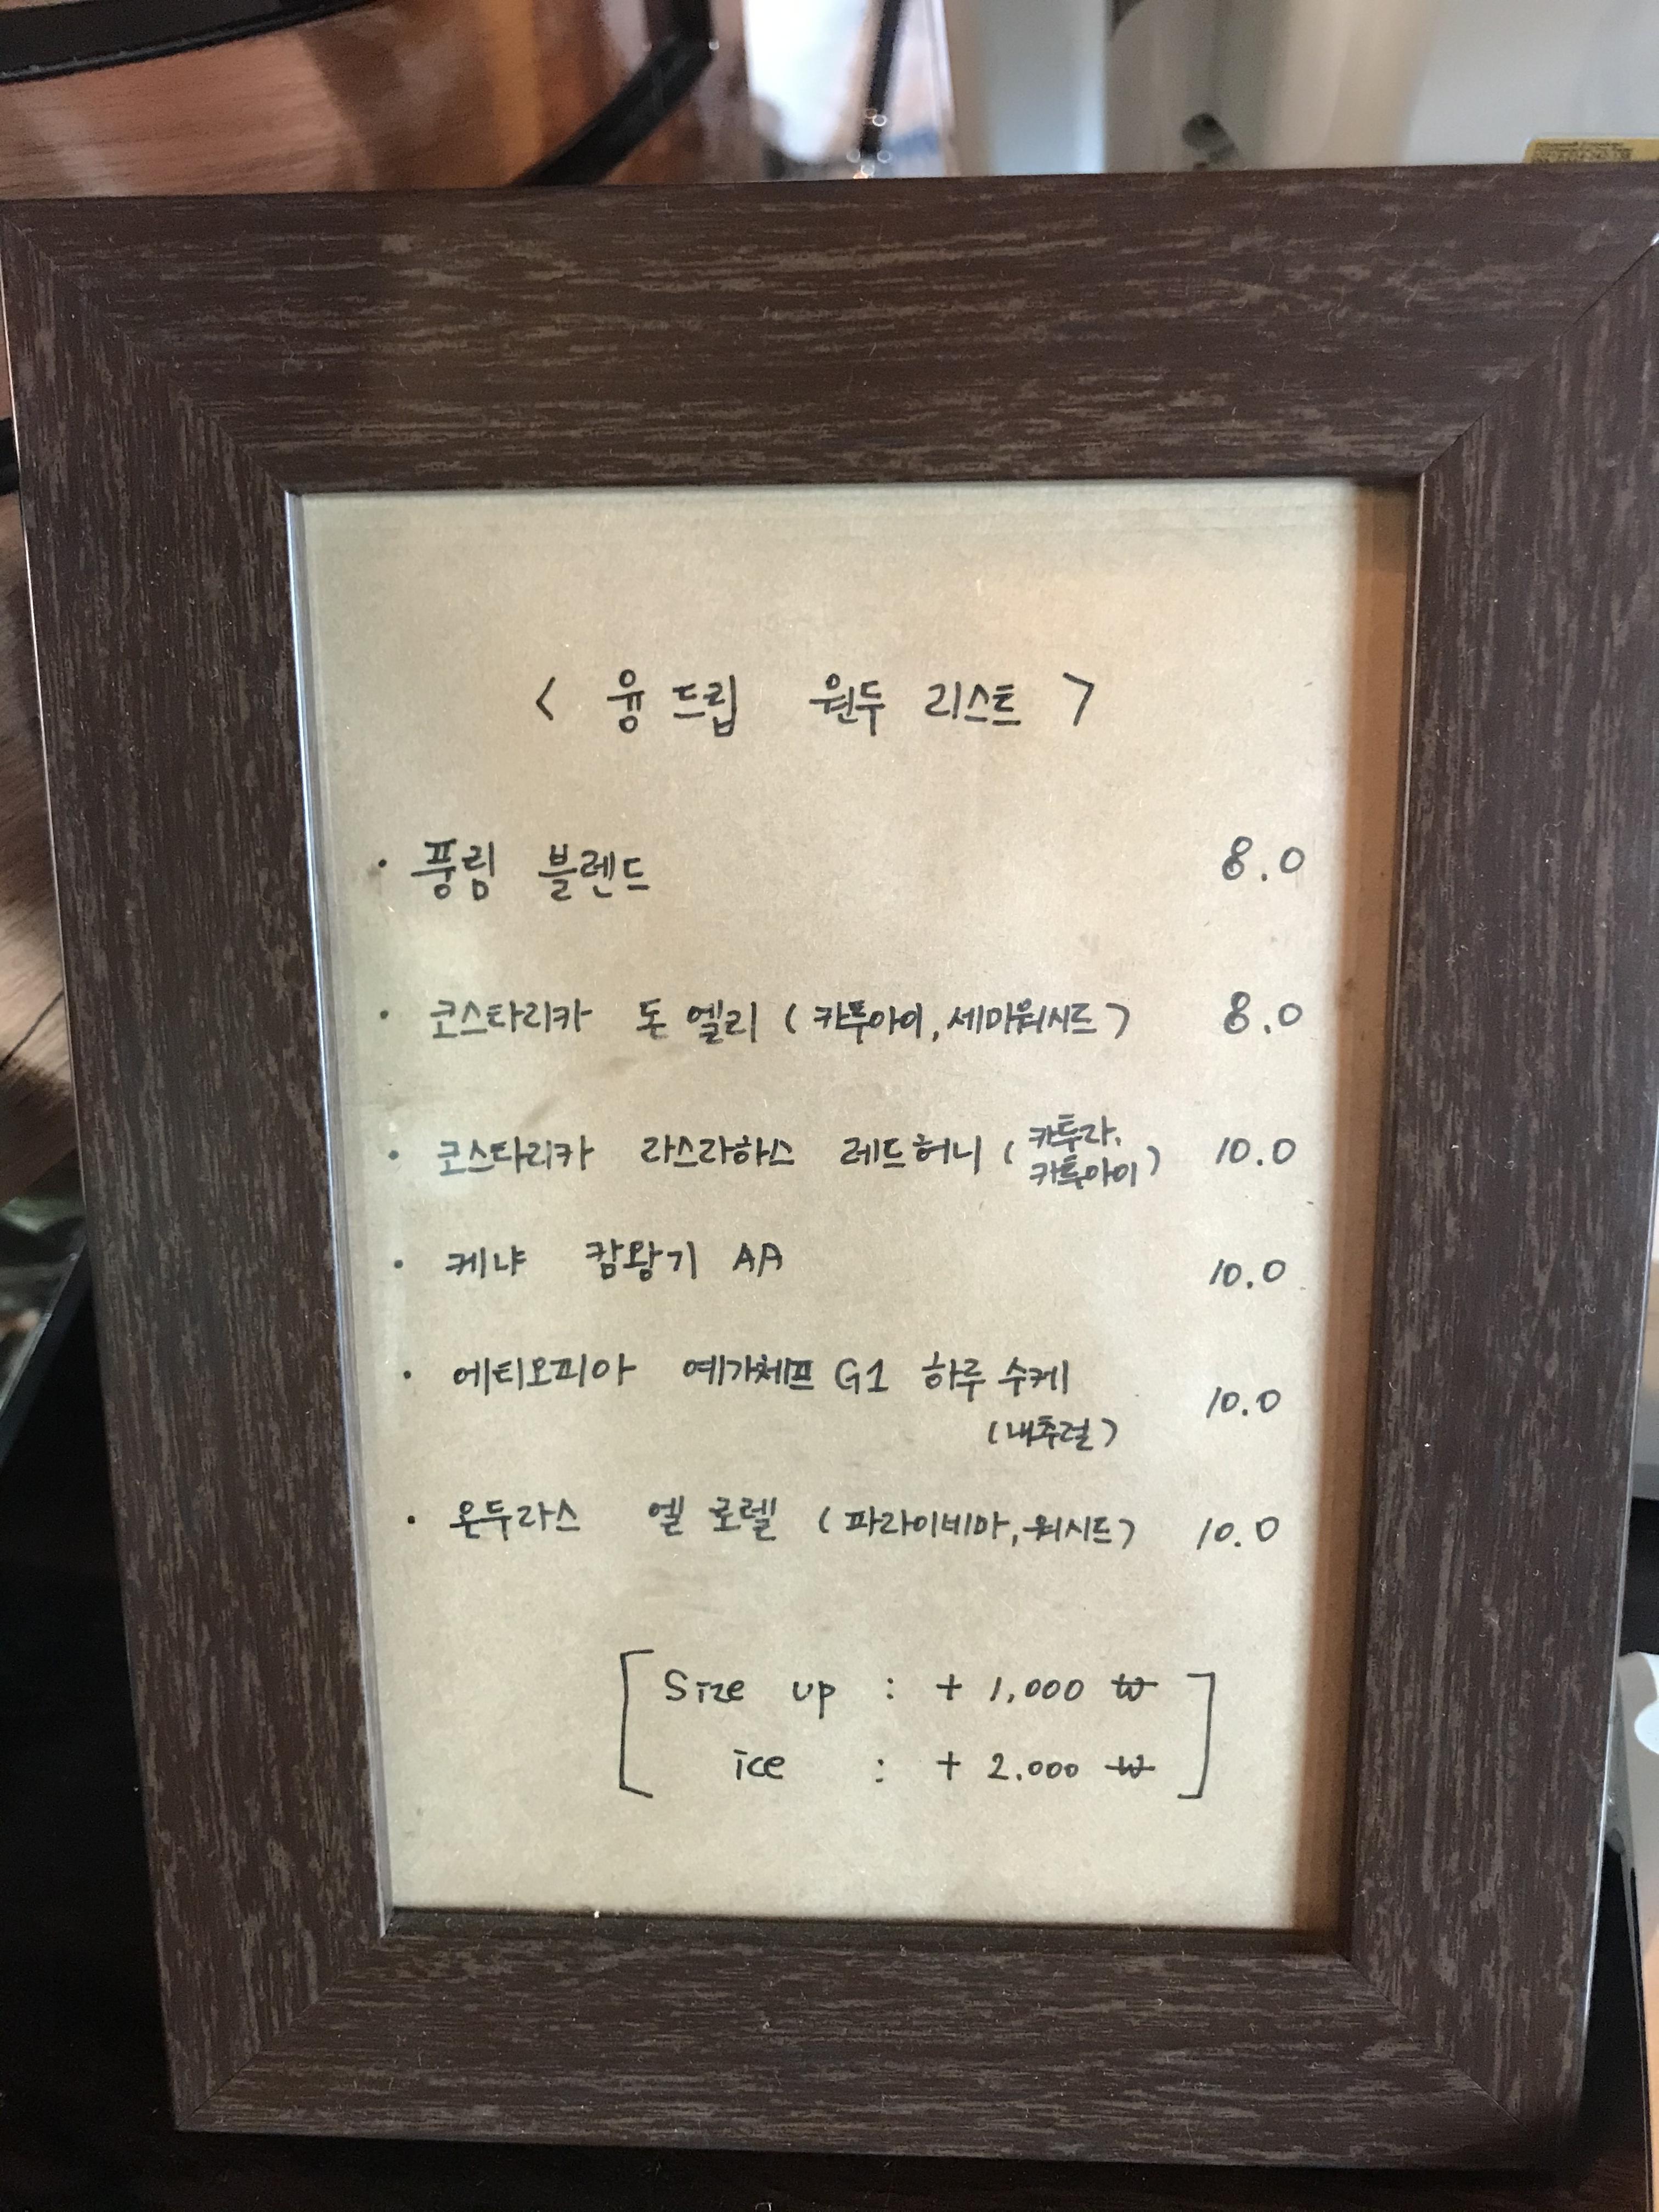 < 융드립 원두 리스트 >
· 풍림 블렌드 8.0
· 코스타리카 돈 엘리 (카투아이, 세미워시드) 8.0
· 코스타리카 라스라하스 레드허니 (카투라, 카투아이) 10.0
· 케냐 캄왕기 AA 10.0
· 에티오피아 예가체프 G1 하루 수케 10.0
(내추럴)
· 온두라스 엘 로렐 (파라이네마, 워시드) 10.0
[ Size up : + 1,000 ₩ ]
ice : + 2.000 ₩